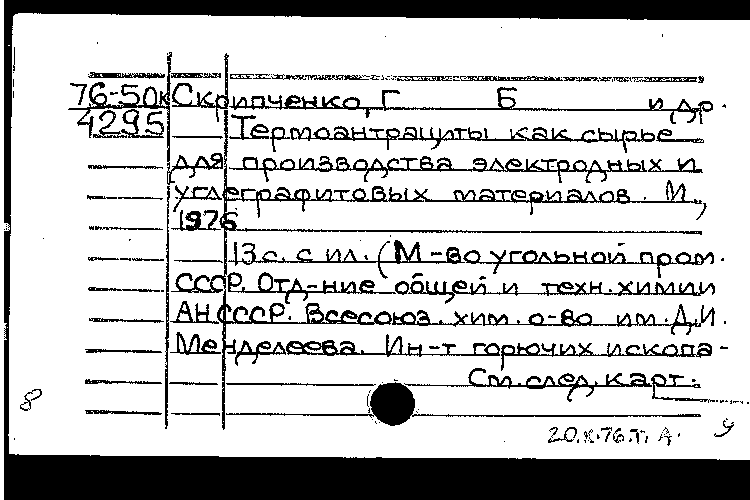 76-50к Скрипченко, Г Б и др.
4295 Термоантрациты как сырье
для производства электродных и
углеграфитовых материалов. М.,
1976
13с. с ил. (М-во угольной пром.
СССР. Отд-ние общей и техн. химии
АН СССР. Всесоюз. хим. о-во им. Д.И.
Менделеева. Ин-т горючих ископа-
См. след. карт.
8
20.X.76.т. А.